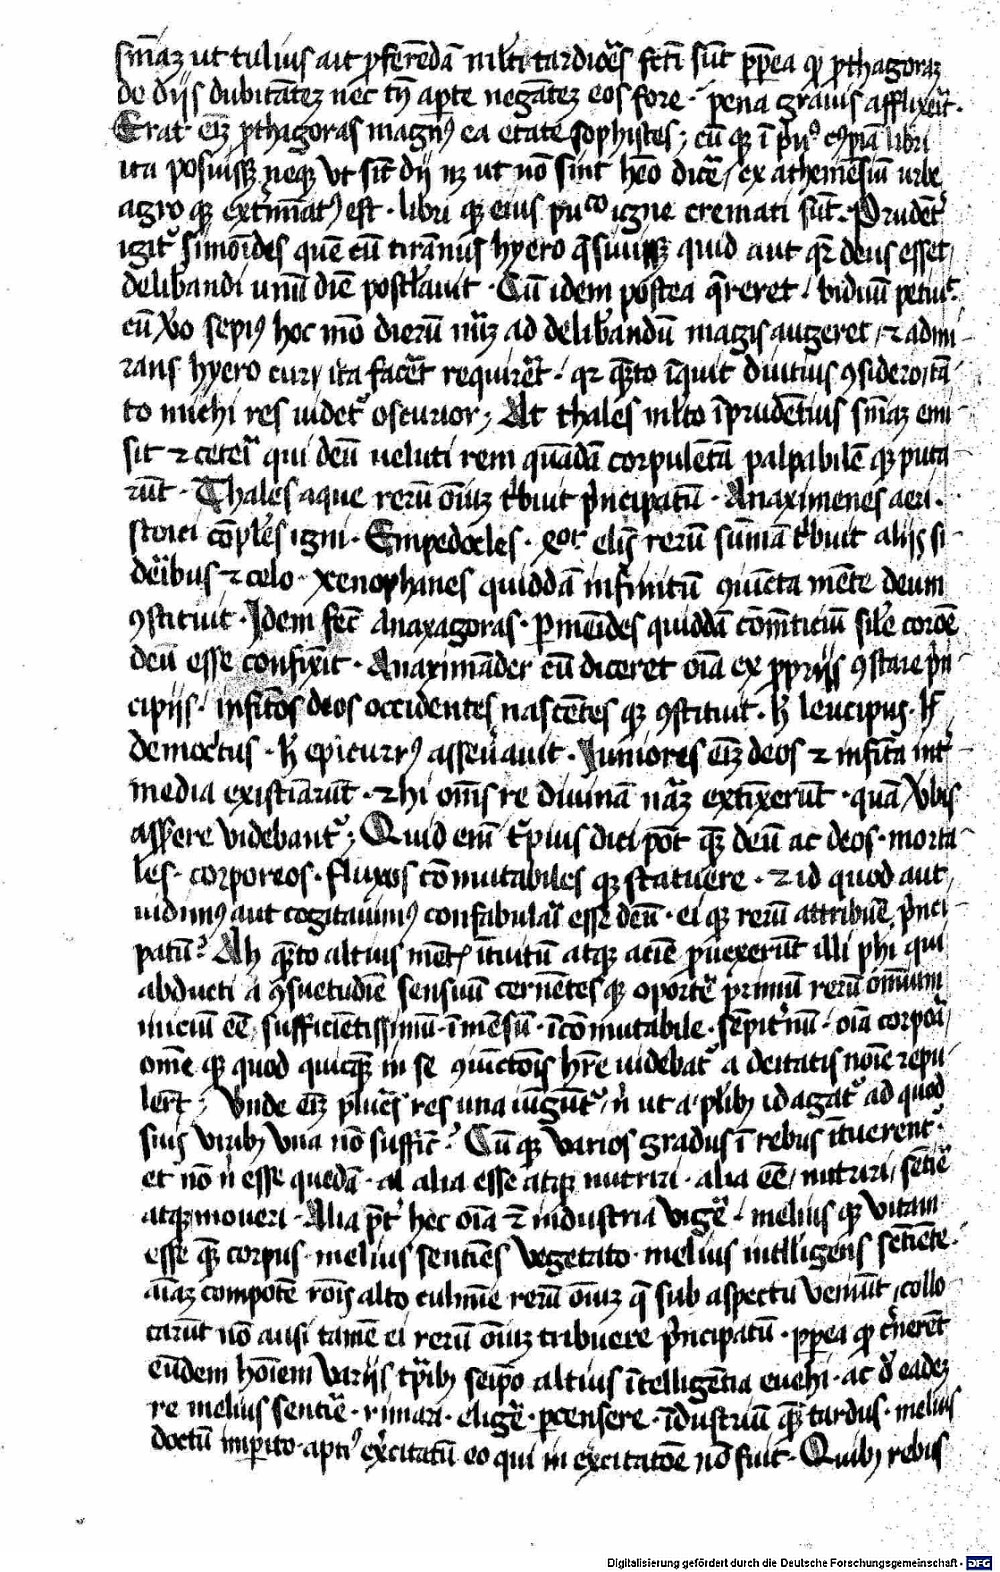 sm̄aꝫ ut tulius ait ꝓferēdā ml̄ti tardiões fcti sūt ꝓpea ꝙ ꝓthagoraꝫ
de dijs dubitātēꝫ nec tn̄ aꝑte negātēꝫ eos fore · pena gravis afflixeīt ·
Erat · eīꝫ ꝓthagoras magn⁹ ea etate sophistes ; cū qꝫ ī libri
ita posuissꝫ neqꝫ ut sīt dij nꝫ ut nō sint hēo dic̄e / ex atheniēsiū urbe
agro qꝫ ext̄miat⁹ est · libri qꝫ eius pu᷒co igne cremati sūt · Prudēt᷑
igit᷑ simoīdes quē cū tirānus hyero q̄suiuissꝫ quid aut qr̄ deus esset /
delib̄andi unū diē postl̄auit · Cū idem postea q̄reret · biduū petiit
cū v̄o sepi⁹ hoc mō dierū nūꝫ ad delib̄andū magis augeret / ⁊ admi
rans hyero cur ita facēt requirēt · qr quāto īquit diutius ꝯsidero tā
to michi res uidet᷑ oscurior ; At thales ml̄to īprudētius sm̄aꝫ emi
sit ⁊ ceteri qui deū ueluti rem quādā corpulētā palpabilē qꝫ puta
rūt · Thales aque rerū oīuꝫ t̄buit p̄ncipatū · Anaximenes aeri ·
stoici cōpl̄es igni · Empedocles · elis rerū sūmā t̄buit alijs si
dēibus ⁊ celo · xenophanes quiddā infinitū ꝯiūcta mēte deum
ꝯstituit · Idem fec̄ Anaxagoras · ꝑmēides quiddā cōm̄ticiū sil̄e coroē
deū esse confixit · Anaximāder cū diceret oīa ex ꝓprijs ꝯstare p̄n
cipijs · infitōs deos occidentes nascētes qꝫ ꝯstituit · h̄ leucipus · h̄
democ̄tus · h̄ epicur⁹ asseūauit · Juniores eīꝫ deos ⁊ infīta int᷑
media existīarūt · ⁊ hi om̄s re diuinā nāꝫ extīxerūt · quā v̄bis
assere videbant᷑ ; Quid em̄ t᷑pius dici pōt qꝫ deū ac deos · morta
les · corporeos · fluxos cōmutabiles qꝫ statuere · ⁊ id quod aut
uidim⁹ aut cogitauim⁹ confabulari esse deū · ei qꝫ rerū attribuē p̄nci
patū ? Ah quāto altius mēt᷑ ītuitū atqꝫ aciē ꝓuexerūt illi phi qui
abducti a ꝯsuetudiē sensuū cernētes qꝫ oporte᷑ primū rerū omniū
iniciū eē sufficiētissimū · īmēsū · īcōmutabile · sēpit᷑nū · oīa corpoā
om̄e qꝫ quod quicqꝫ in se ꝯiūctōis hr̄e uidebat᷑ a deitatis noīe repu
lert̄ ; Unde eīꝫ pluēs res una iūgūt᷑ / n̄ ut a pl̄ibꝫ id agat᷑ ad quod
sius viribꝫ una nō suffic̄ ? Cū qꝫ varios gradus ī rebus ītuerent᷑
et nō n̄ esse quedā · al alia esse atqꝫ nutriri · alia eē / nutriri / sētie᷑
atqꝫ moueri · Alia p̄t᷑ hec oīa ⁊ industria vige᷑ · melius qꝫ vitam
esse qꝫ corpus · melius sentiēs vegetato · melius intelligens sētiente ·
aīaꝫ compotē rōis alto culmīe rerū oīuꝫ q̄ sub aspectu veniūt / collo
carūt nō ausi tamē ei rerū oīuꝫ tribuere p̄ncipatū · ꝓpea ꝙ c̄nerēt
eūdem hoīem varijs t̄pibꝫ seipō altius ītelligētia euehi · ac d̄ eadeꝫ
re melius sentie᷑ · rimari · elige᷑ · ꝑcensere · īdustriū qꝫ tardus · melius
doctū imꝑito · apti⁹ excitatū eo qui in excitatōe nō fuit · Quibꝫ rebus
Digitalisierung gefördert durch die Deutsche Forschungsgemeinschaft - DFG